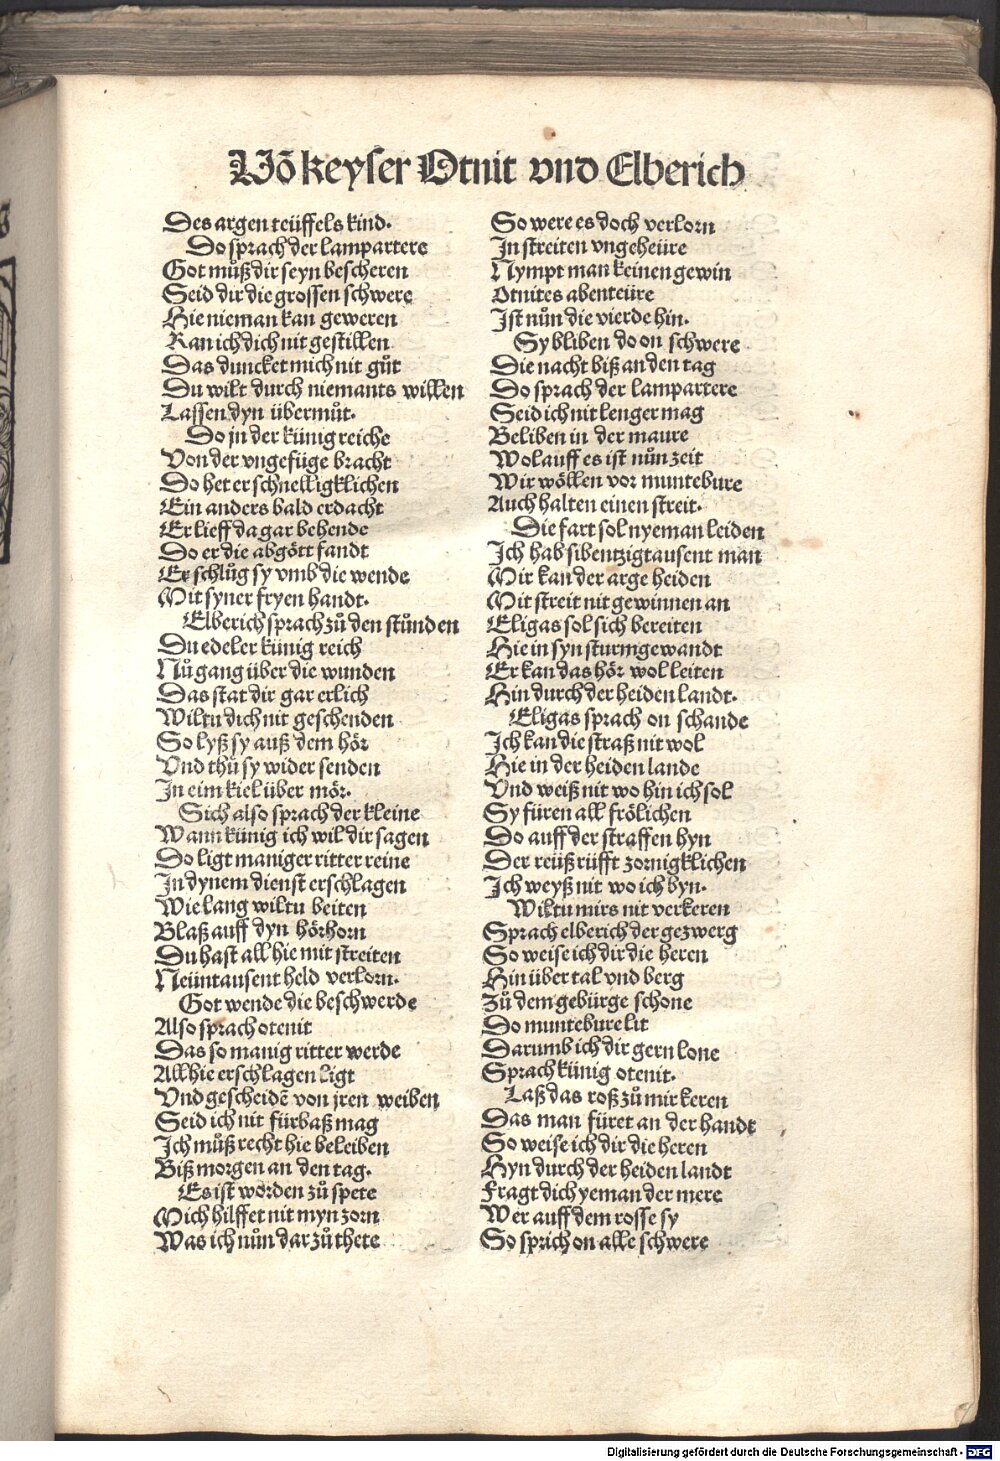 Võ keyser Otnit vnd Elberich
Des argen teüffels kind.
Do sprach der lampartere
Got můß dir seyn bescheren
Seid dir die grossen schwere
Hie nieman kan geweren
Kan ich dich nit gestillen
Das duncket mich nit gůt
Du wilt durch niemants willen
Lassen dyn übermůt.
Do jn der künig reiche
Von der vngefüge bracht
Do het er schnelligklichen
Ein anders bald erdacht
Er lieff da gar behende
Do er die abgött fandt
Er schlůg sy vmb die wende
Mit syner fryen handt.
Elberich sprach zů den stůnden
Du edeler künig reich
Nů gang über die wunden
Das stat dir gar erlich
Wiltu dich nit geschenden
So lyß sy auß dem hör
Vnd thů sy wider senden
In eim kiel über mör.
Sich also sprach der kleine
Wann künig ich wil dir sagen
Do ligt maniger ritter reine
In dynem dienst erschlagen
Wie lang wiltu beiten
Blaß auff dyn hörhorn
Du hast all hie mit streiten
Neüntausent held verlorn.
Got wende die beschwerde
Also sprach otenit
Das so manig ritter werde
All hie erschlagen ligt
Vnd gescheidẽ von jren weiben
Seid ich nit fürbaß mag
Ich můß recht hie beleiben
Biß morgen an den tag.
Es ist worden zů spete
Mich hilffet nit myn zorn
Was ich nůn dar zů thete
So were es doch verlorn
In streiten vngeheüre
Nympt man keinen gewin
Otnites abenteüre
Ist nůn die vierde hin.
Sy bliben do on schwere
Die nacht biß an den tag
Do sprach der lampartere
Seid ich nit lenger mag
Beliben in der maure
Wolauff es ist nůn zeit
Wir wöllen vor muntebure
Auch halten einen streit.
Die fart sol nyeman leiden
Ich hab sibentzigtausent man
Mir kan der arge heiden
Mit streit nit gewinnen an
Eligas sol sich bereiten
Hie in syn sturmgewandt
Er kan das hör wol leiten
Hin durch der heiden landt.
Eligas sprach on schande
Ich kan die straß nit wol
Hie in der heiden lande
Vnd weiß nit wo hin ich sol
Sy füren all frölichen
Do auff der strassen hyn
Der reüß rüfft zornigklichen
Ich weyß nit wo ich byn.
Wiltu mirs nit verkeren
Sprach elberich der gezwerg
So weise ich dir die heren
Hin über tal vnd berg
Zů dem gebürge schone
Do muntebure lit
Darumb ich dir gern lone
Sprach künig otenit.
Laß das roß zů mir keren
Das man füret an der handt
So weise ich dir die heren
Hyn durch der heiden landt
Fragt dich yeman der mere
Wer auff dem rosse sy
So sprich on alle schwere
Digitalisierung gefördert durch die Deutsche Forschungsgemeinschaft - DFG